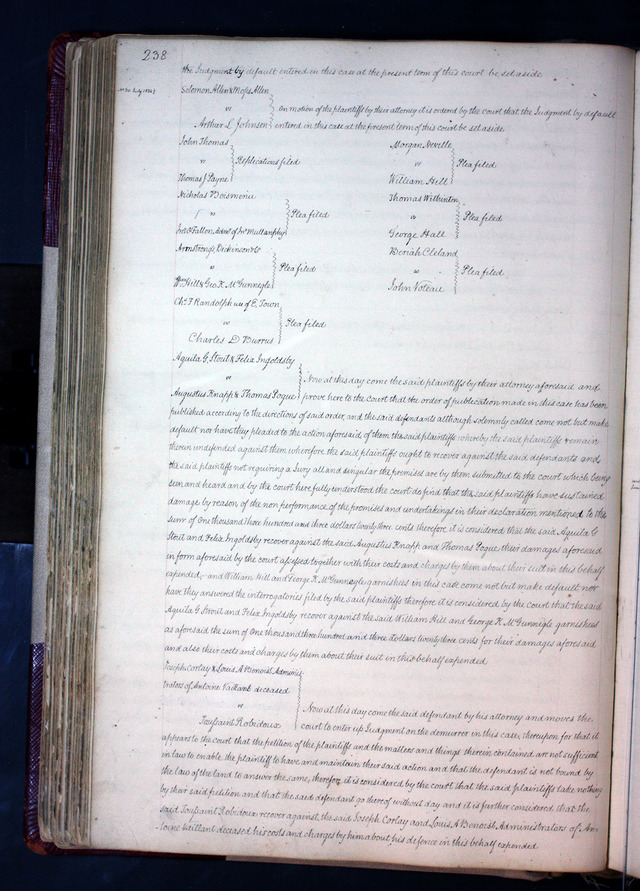 238
the Judgment by default entered in this case at the present term of this court be set aside
Solomon Allen & Moses Allen
vs
On motion of the plaintiffs by their attorney it is ordered by the court that the Judgment by default
Arthur L Johnson
entered in this case at the present term of this court be set aside
John Thomas
vs
Replications filed
Thomas J Payne
Morgan Neville
vs
Plea filed
William Hill
Nicholas Boismenu
vs
Plea filed
Thomas Wilburton
vs
Plea filed
George Hall
Armstrong, Dickinson & Co
vs
Plea filed
Wm Hill & Geo. K. McGunnegle
Beriah Cleland
vs
Plea filed
John Noteau
Chs. F Randolph use of E. Town
vs
Plea filed
Charles D Burrus
Aquila G, Stout & Felix Ingoldsby
vs
Now at this day come the said plaintiffs by their attorney aforesaid and
Augustus Knapp & Thomas Pogue
prove here to the Court that the order of publication made in this case has been
published according to the directions of said order, and the said defendants although solemnly called come not but make
default nor have they pleaded to the action aforesaid of them the said plaintiffs whereby the said plaintiffs remain
therein undefended against them wherefore the said plaintiffs ought to recover against the said defendants and
the said plaintiffs not requiring a Jury all and singular the premises are by them submitted to the court which being
seen and heard and by the court here fully understood the court do find that the said plaintiffs have sustained
damage by reason of the non performance of the promises and undertakings in their declaration mentioned to the
sum of One thousand three hundred and three dollars twenty three cents therefore it is considered that the said Aquila G
Stout and Felix Ingoldsby recover against the said Augustus Knapp and Thomas Pogue their damages aforesaid
in form aforesaid by the court assessed together with their costs and charges by them about their suit in this behalf
expended,- and William Hill and George K McGunnegle garnishees in this case come not but make default nor
have they answered the interrogatories filed by the said plaintiffs therefore it is considered by the court that the said
Aquila G Stout and Felix Ingoldsby recover against the said William Hill and George K McGunnegle garnishees
as aforesaid the sum of One thousand three hundred and three dollars twenty three cents for their damages aforesaid
and also their costs and charges by them about their suit in this behalf expended
Joseph Corlay & Louis A Benoist Adminis
trators of Antoine Vaillant deceased
vs
Now at this day come the said defendant by his attorney and moves the
Toussaint Robidoux
court to enter up Judgment on the demurrer in this case, thereupon for that it
appears to the court that the petition of the plaintiffs and the matters and things therein contained are not sufficient
in law to enable the plaintiffs to have and maintain their said action and that the defendant is not bound by
the law of the land to answer the same, therefore it is considered by the court that the said plaintiffs take nothing
by their said petition and that the said defendant go thereof without day and it is further considered that the
said Toussaint Robidoux recover against the said Joseph Corlay and Louis A Benoist Administrators of An
toine Vaillant deceased his costs and charges by him about his defence in this behalf expended